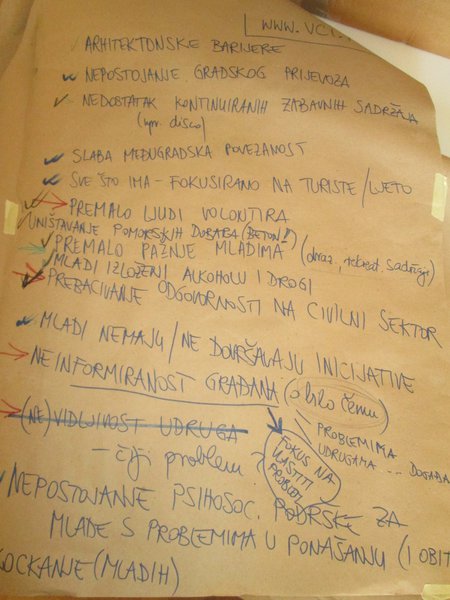 WWW.VCT.
ARHITEKTONSKE BARIJERE
NEPOSTOJANJE GRADSKOG PRIJEVOZA
NEDOSTATAK KONTINUIRANIH ZABAVNIH SADRŽAJA
(npr. disco)
SLABA MEĐUGRADSKA POVEZANOST
SVE ŠTO IMA - FOKUSIRANO NA TURISTE/LJETO
PREMALO LJUDI VOLONTIRA
UNIŠTAVANJE POMORSKIH DOBARA (BETON!!)
PREMALO PAŽNJE MLADIMA (obraz., rekreat. sadržaji)
MLADI IZLOŽENI ALKOHOLU I DROGI
PREBACIVANJE ODGOVORNOSTI NA CIVILNI SEKTOR
MLADI NEMAJU/NE DOVRŠAVAJU INICIJATIVE
NEINFORMIRANOST GRAĐANA (o bilo čemu)
PROBLEMIMA
UDRUGAMA ... DOGAĐA
(NE)VIDLJIVOST UDRUGA
- čiji problem?
FOKUS NA
VLASTITI
PROBLEM
NEPOSTOJANJE PSIHOSOC. PODRŠKE ZA
MLADE S PROBLEMIMA U PONAŠANJU (I OBIT
KOCKANJE (MLADIH)